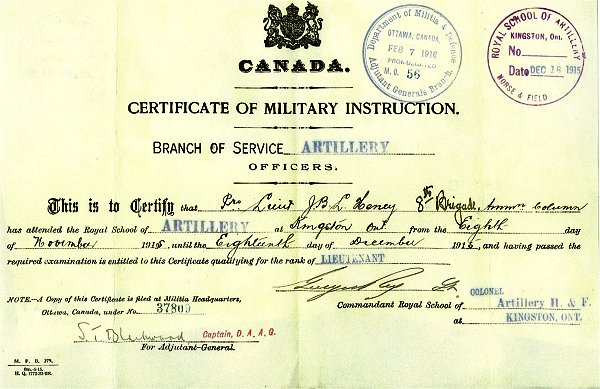 CANADA.
Department of Militia & Defence
OTTAWA, CANADA,
FEB 7 1916
PROMULGATED
M.O. 56
Adjutant Generals Branch.
ROYAL SCHOOL OF ARTILLERY
KINGSTON, Ont.
No
Date DEC 18 1915
HORSE & FIELD
CERTIFICATE OF MILITARY INSTRUCTION.
BRANCH OF SERVICE ARTILLERY
OFFICERS.
This is to Certify that Pro Lieut J B L Heney 8th Brigade, Ammn Column
has attended the Royal School of ARTILLERY at Kingston Ont. from the Eighth day
of November 1915 until the Eighteenth day of December 1915, and having passed the
required examination is entitled to this Certificate qualifying for the rank of LIEUTENANT
COLONEL
Commandant Royal School of Artillery H. & F.
at KINGSTON, ONT.
NOTE.—A Copy of this Certificate is filed at Militia Headquarters,
Ottawa, Canada, under No. 37809
Captain, D. A. A. G.
For Adjutant-General.
M. F. B. 279.